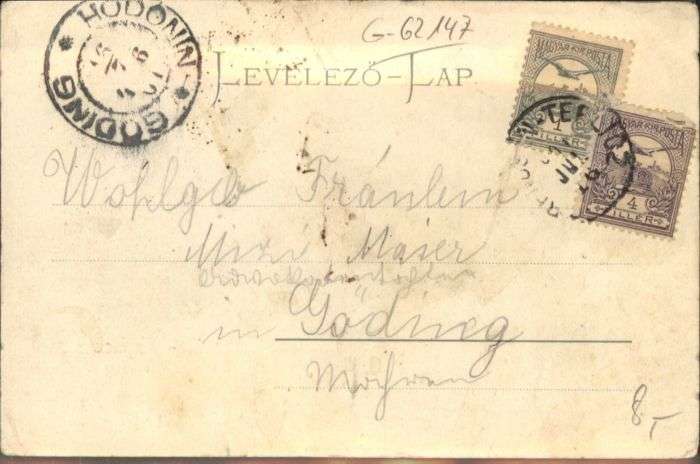 G-62147
HODONIN
GÖDING
LEVELEZŐ-LAP
MAGYAR KIR. POSTA
1
FILLER
MAGYAR KIR. POSTA
4
FILLER
Wohlgeb Fräulein
Mizi Maser
in Göding
Mähren
8,-